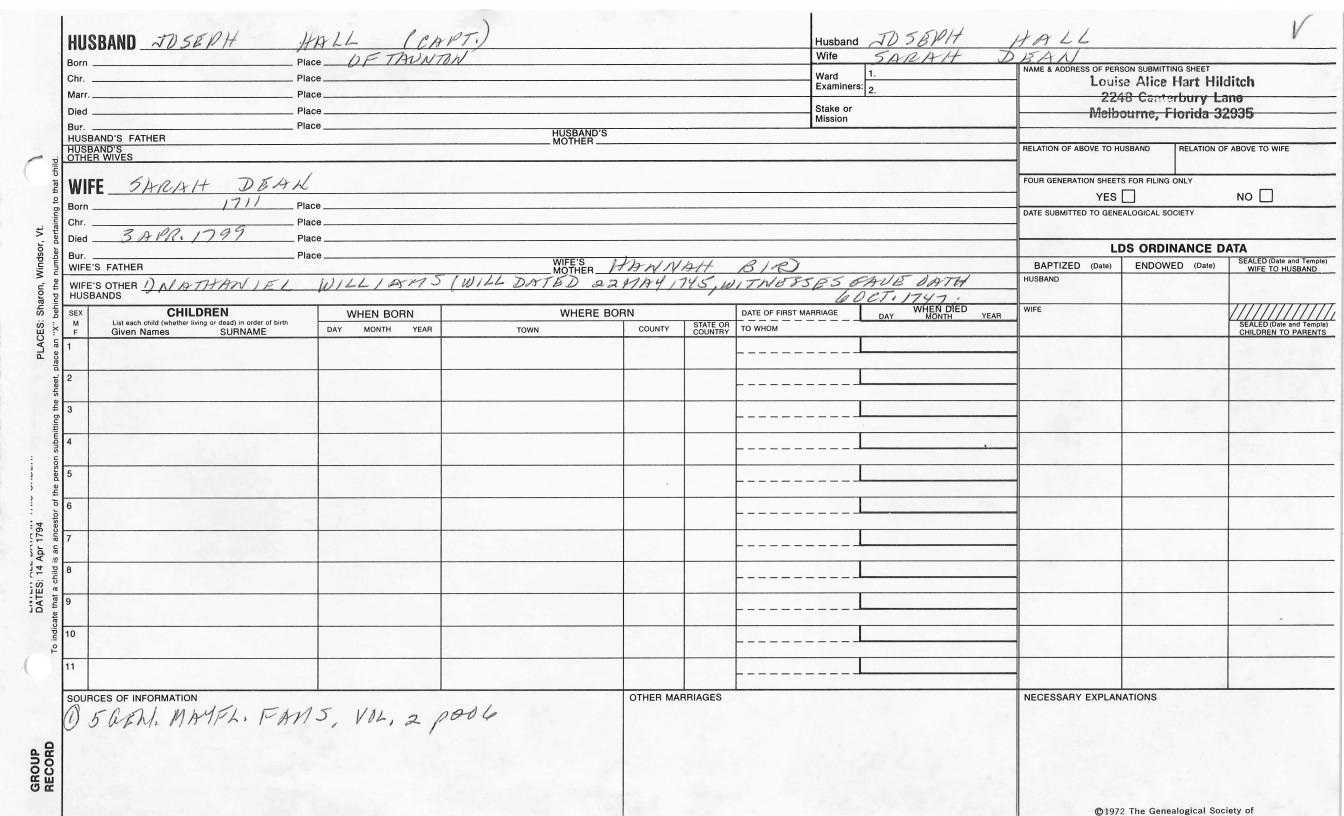 HUSBAND JOSEPH HALL (CAPT.)
Born Place OF TAUNTON
Chr. Place
Marr. Place
Died Place
Bur. Place
HUSBAND'S FATHER HUSBAND'S MOTHER
HUSBAND'S OTHER WIVES
Husband JOSEPH HALL
Wife SARAH DEAN
Ward Examiners: 1. 2.
Stake or Mission
NAME & ADDRESS OF PERSON SUBMITTING SHEET
Louise Alice Hart Hilditch
2248 Canterbury Lane
Melbourne, Florida 32935
RELATION OF ABOVE TO HUSBAND RELATION OF ABOVE TO WIFE
FOUR GENERATION SHEETS FOR FILING ONLY
YES NO
DATE SUBMITTED TO GENEALOGICAL SOCIETY
WIFE SARAH DEAN
Born 1711 Place
Chr. Place
Died 3 APR. 1799 Place
Bur. Place
WIFE'S FATHER WIFE'S MOTHER HANNAH BIRD
WIFE'S OTHER HUSBANDS 1) NATHANIEL WILLIAMS (WILL DATED 22 MAY 1745, WITNESSES GAVE OATH
6 OCT. 1747.
LDS ORDINANCE DATA
BAPTIZED (Date) ENDOWED (Date) SEALED (Date and Temple) WIFE TO HUSBAND
HUSBAND
WIFE
SEALED (Date and Temple) CHILDREN TO PARENTS
SEX M F
CHILDREN
List each child (whether living or dead) in order of birth
Given Names SURNAME
WHEN BORN
DAY MONTH YEAR
WHERE BORN
TOWN COUNTY STATE OR COUNTRY
DATE OF FIRST MARRIAGE
TO WHOM
WHEN DIED
DAY MONTH YEAR
1
2
3
4
5
6
7
8
9
10
11
SOURCES OF INFORMATION
① 5 GEN. MAYFL. FAMS, VOL. 2 p206
OTHER MARRIAGES
NECESSARY EXPLANATIONS
©1972 The Genealogical Society of
PLACES: Sharon, Windsor, Vt.
DATES: 14 Apr 1794
To indicate that a child is an ancestor of the person submitting the sheet, place an "X" behind the number pertaining to that child.
GROUP RECORD